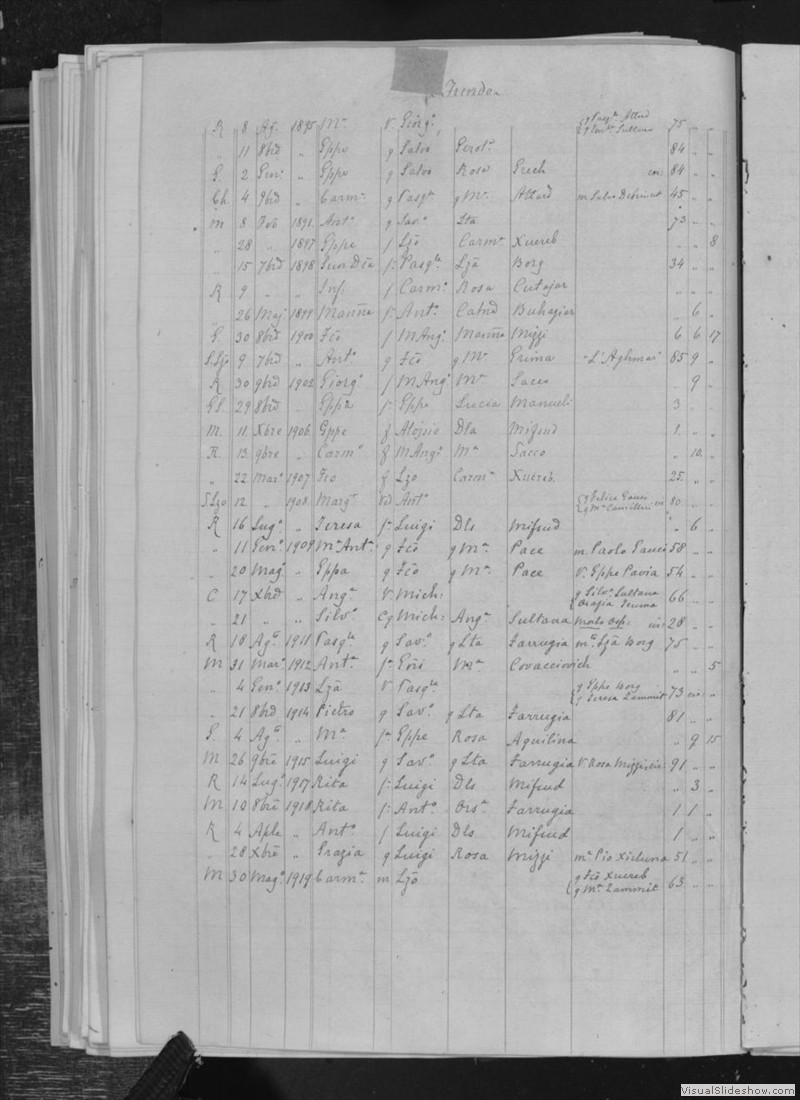 R 8 Ag. 1895 Mª V. Giorgº 75 " "
" 11 8bre " Gppe g Salvo 84 " "
G. 2 Genº " Gppe g Salvo Rosa Grech 84 " "
Ch. 4 9bre " Carmª g Pasqle g Mª Attard m Salvo 45 " "
M 8 Feb 1896 Antº g Savº Lta 73 " "
" 28 " 1897 Gppe f Lzo Carmª Xuereb " " 8
" 15 7bre 1898 f. Pasqle Lza Borg 34 " "
R 9 " " Inf. f Carmº Rosa Cutajar " " "
" 26 Maj 1899 Marina f. Antº Catnd Buhagiar " 6 "
G. 30 8bre 1900 Fco f MAngº Marina Mizzi 6 6 17
S.Lzo 9 7bre " Antª g Fco g Mª Grima "L'Aghmar" 85 9 "
R 30 9bre 1902 Giorgº f MAngº Mª Sacco " 9 "
29 8bre " Gppa f. Gppe Lucia Manueli 3 " "
M. 11. Xbre 1906 Gppe f Aloisio Dla Mifsud 1. " "
R. 13 9bre " Carmº f MAngº Mª Sacco " 10. "
" 22 Marº 1907 Fco f Lzo Carmª Xuereb. 25. " "
S.Lzo 12 " 1908. Margª Vd Antº { g Felice Gauci g Mª Camilleri 80 " "
R 16 Lugº " Teresa f. Luigi Dls Mifsud " 6 "
" 11 Genº 1909 Mª Antª g Fco g Mª Pace m. Paolo Gauci 58 " "
" 20 Magº " Gppa g Fco g Mª Pace V. Gppe Pavia 54 " "
C 17 Xbre " Angª V Mich: { g Silvº Sultana Grazia 66 " "
" 21 " " Silvº Cg Mich: Angª Sultana Morto Osp: 28 " "
R 18 Agº 1911 Pasqª g Savº g Lta Farrugia mª Lza Borg 75 " "
M 31 Marº 1912 Antª fª Gns Mª Covaccievich " " 5
" 4 Genº 1913 Lza V Pasqle { g Gppe Borg g Teresa Zammit 73 " "
" 21 8bre 1914 Pietro g Savº g Lta Farrugia 81 " "
G. 4 Agº " Mª fª Gppe Rosa Aquilina " 9 15
M 26 9bre 1915 Luigi g Savº g Lta Farrugia V. Rosa Mizzi 91 " "
R 14 Lugº 1917 Rita f. Luigi Dls Mifsud " 3 "
M 10 8bre 1918 Rita f. Antº Orsª Farrugia 1 1 "
R 4 Aple " Antº f Luigi Dls Mifsud 1 " "
" 28 Xbre " Grazia g Luigi Rosa Mizzi mª Pio Xicluna 51 " "
M 30 Magº 1919 Carmª m Lzo { g Fco Xuereb g Mª Zammit 63. " "
VisualSlideshow.com